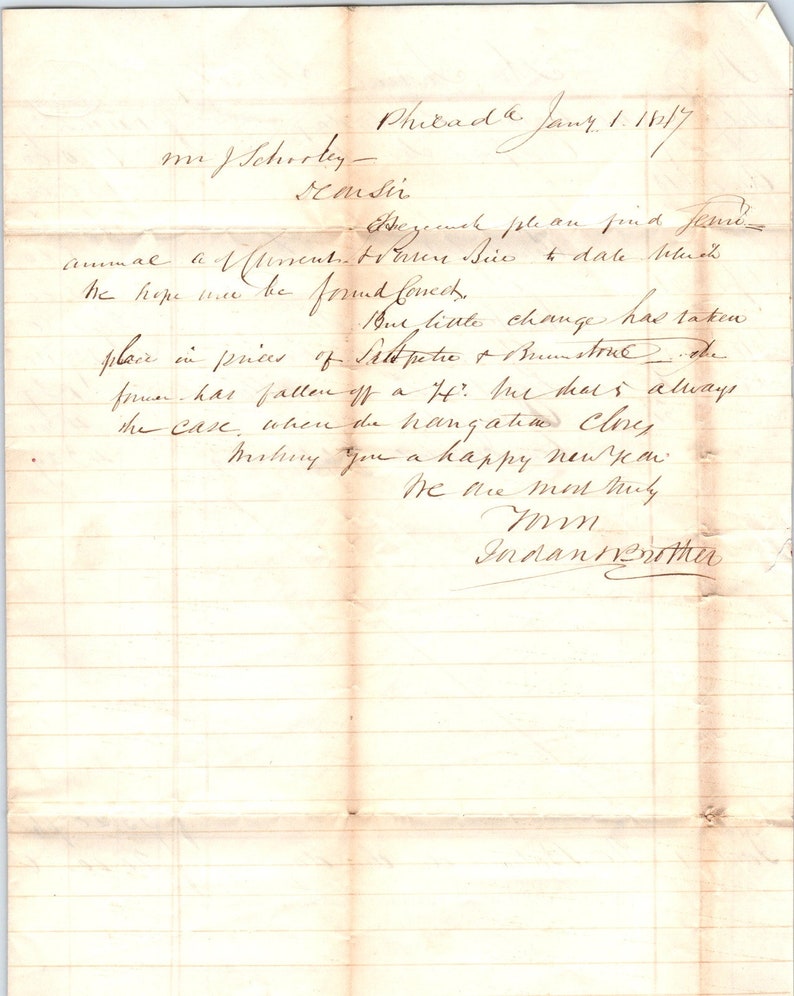 Philad a Jany 1. 1847
Mr J Schooley —
Dear Sir
Herewith please find Semi=
annual a/c Current & Powder Bill to date which
we hope will be found Correct.
But little change has taken
place in prices of Saltpetre & Brimstone — the
former has fallen off a but that is always
the case when the navigation closes
Wishing you a happy new Year
We are most truly
Yours
Jordan & Brother